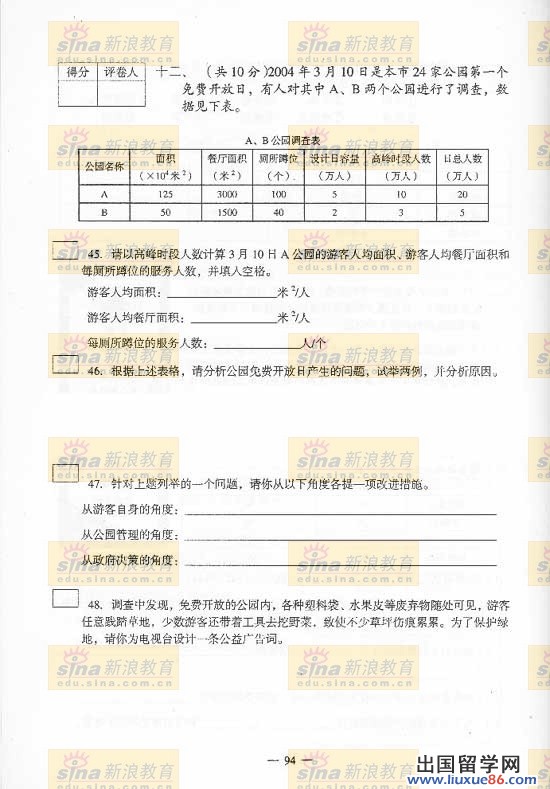 得分 评卷人
十二、（共10分）2004年3月10日是本市24家公园第一个
免费开放日，有人对其中A、B两个公园进行了调查，数
据见下表。
A、B公园调查表
公园名称 面积（×10⁴米²） 餐厅面积（米²） 厕所蹲位（个） 设计日容量（万人） 高峰时段人数（万人） 日总人数（万人）
A 125 3000 100 5 10 20
B 50 1500 40 2 3 5
45. 请以高峰时段人数计算3月10日A公园的游客人均面积、游客人均餐厅面积和
每厕所蹲位的服务人数，并填入空格。
游客人均面积：____________米²/人
游客人均餐厅面积：____________米²/人
每厕所蹲位的服务人数：____________人/个
46. 根据上述表格，请分析公园免费开放日产生的问题，试举两例，并分析原因。
47. 针对上题列举的一个问题，请你从以下角度各提一项改进措施。
从游客自身的角度：____________
从公园管理的角度：____________
从政府决策的角度：____________
48. 调查中发现，免费开放的公园内，各种塑料袋、水果皮等废弃物随处可见，游客
任意践踏草地，少数游客还带着工具去挖野菜，致使不少草坪伤痕累累。为了保护绿
地，请你为电视台设计一条公益广告词。
— 94 —
sina 新浪教育
edu.sina.com.cn
出国留学网
www.liuxue86.com